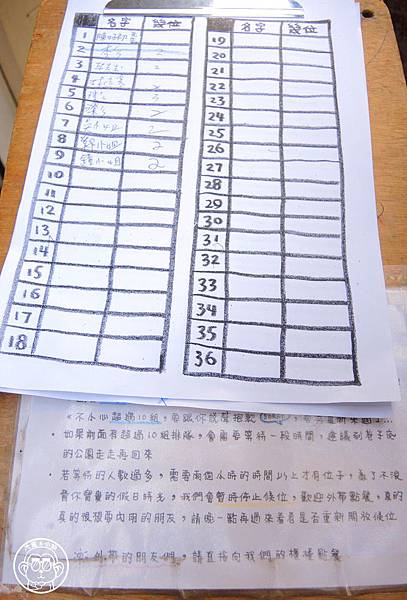 名字 幾位
1
2 2
3 2
4
5 3
6 2
7 2
8 2
9 2
10
11
12
13
14
15
16
17
18
名字 幾位
19
20
21
22
23
24
25
26
27
28
29
30
31
32
33
34
35
36
不小心超過10組,要跟你說聲抱歉
• 如果前面有超過10組排隊,會需要等待一段時間,建議到巷子底
的公園走走再回來
• 若等待的人數過多,需要兩個小時的時間以上才有位子,為了不浪
費你寶貴的假日時光,我們會暫時停止候位,歡迎外帶點餐,真的
真的很想要內用的朋友,請晚一點再過來看看是否重新開放候位
外帶的朋友們,請直接向我們的櫃檯點餐